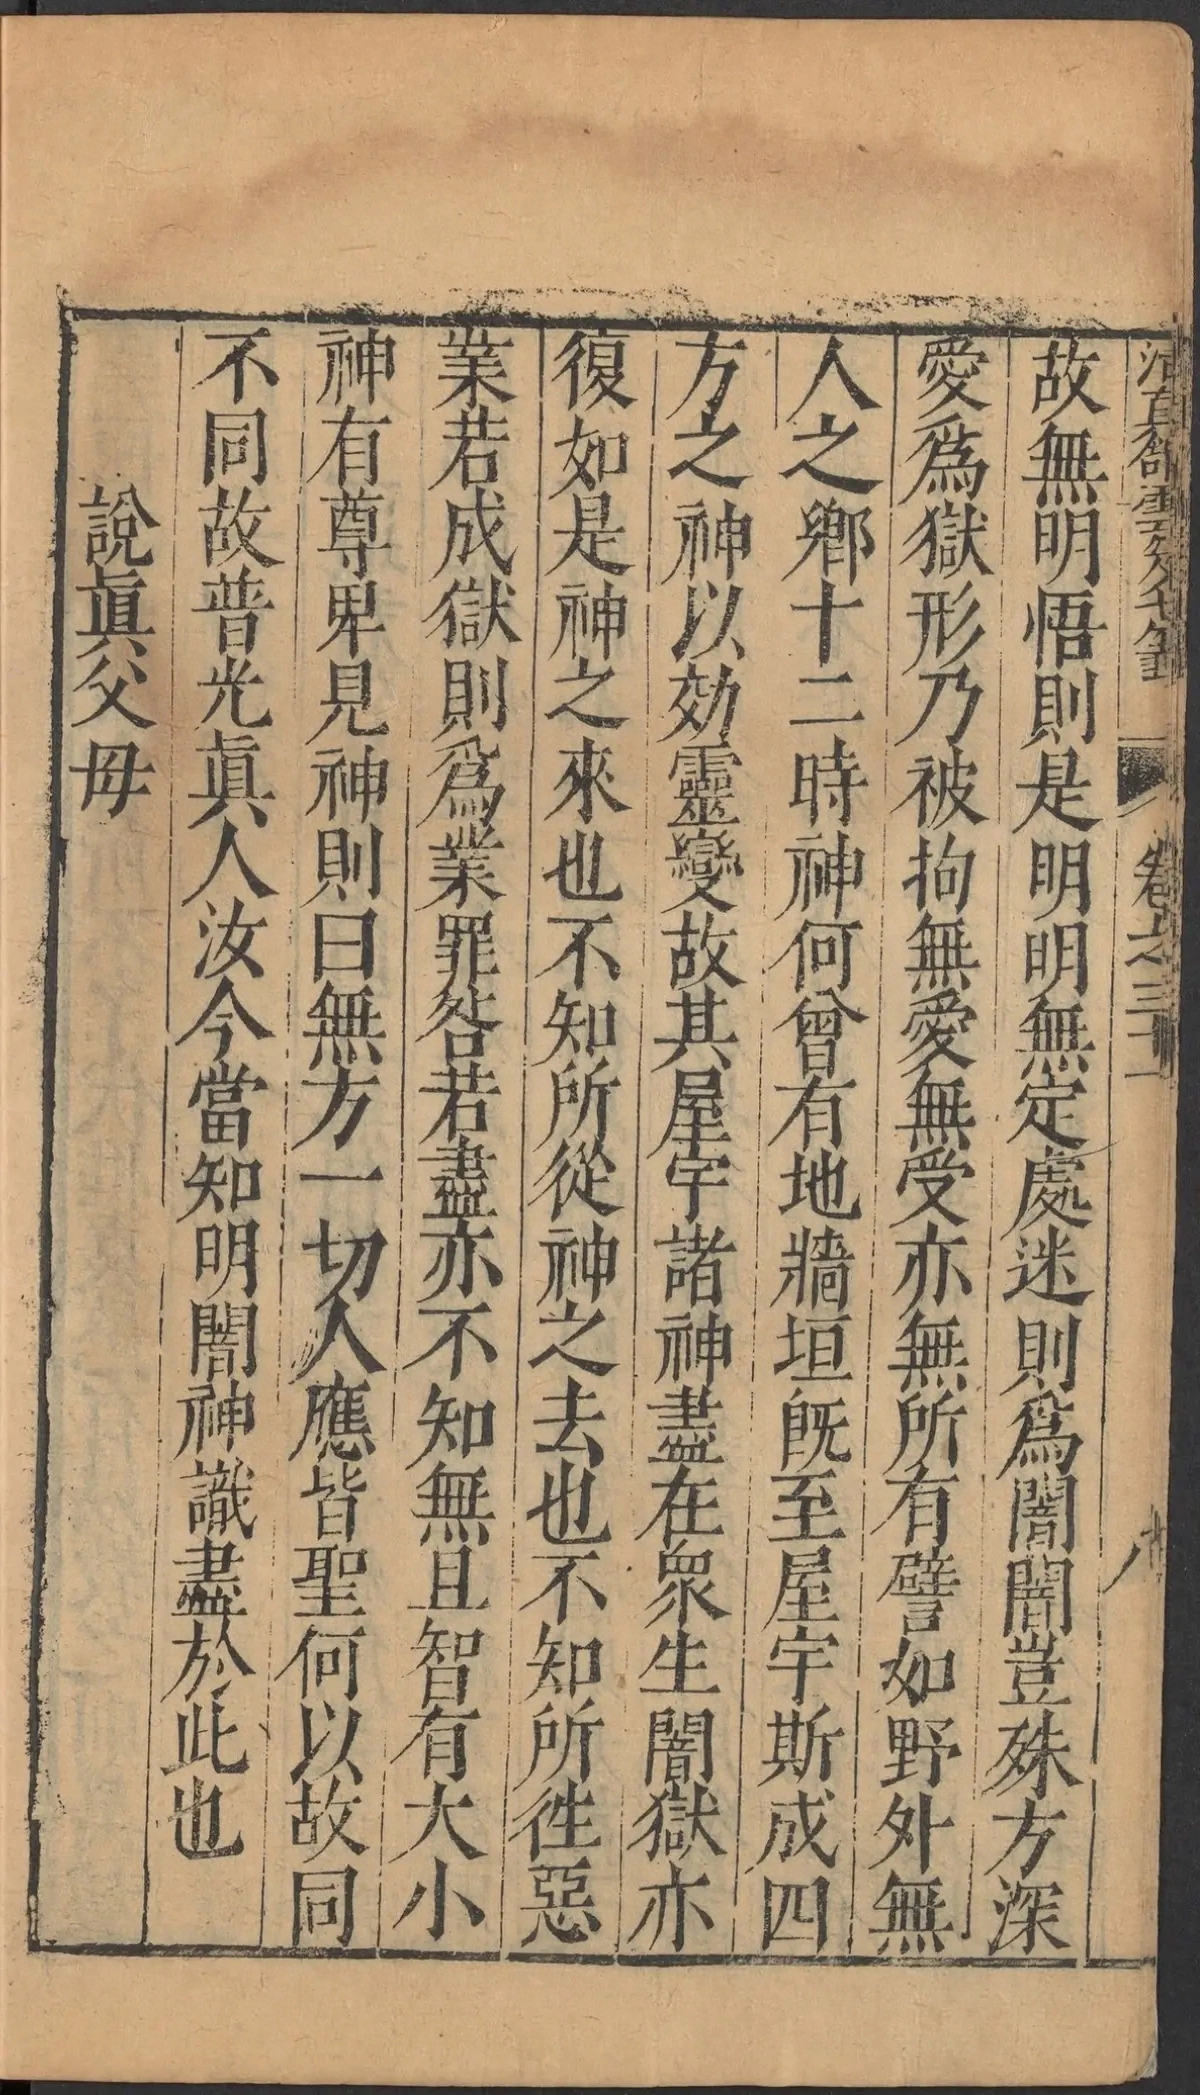 卷之三十一
故無明悟則是明明無定處迷則爲闇闇豈殊方深
愛爲獄形乃被拘無愛無受亦無所有譬如野外無
人之鄉十二時神何曾有地牆垣旣至屋宇斯成四
方之神以効靈變故其屋宇諸神盡在衆生闇獄亦
復如是神之來也不知所從神之去也不知所徃惡
業若成獄則爲業罪咎若盡亦不知無且智有大小
神有尊卑見神則曰無方一切人應皆聖何以故同
不同故普光眞人汝今當知明闇神識盡於此也
說眞父母